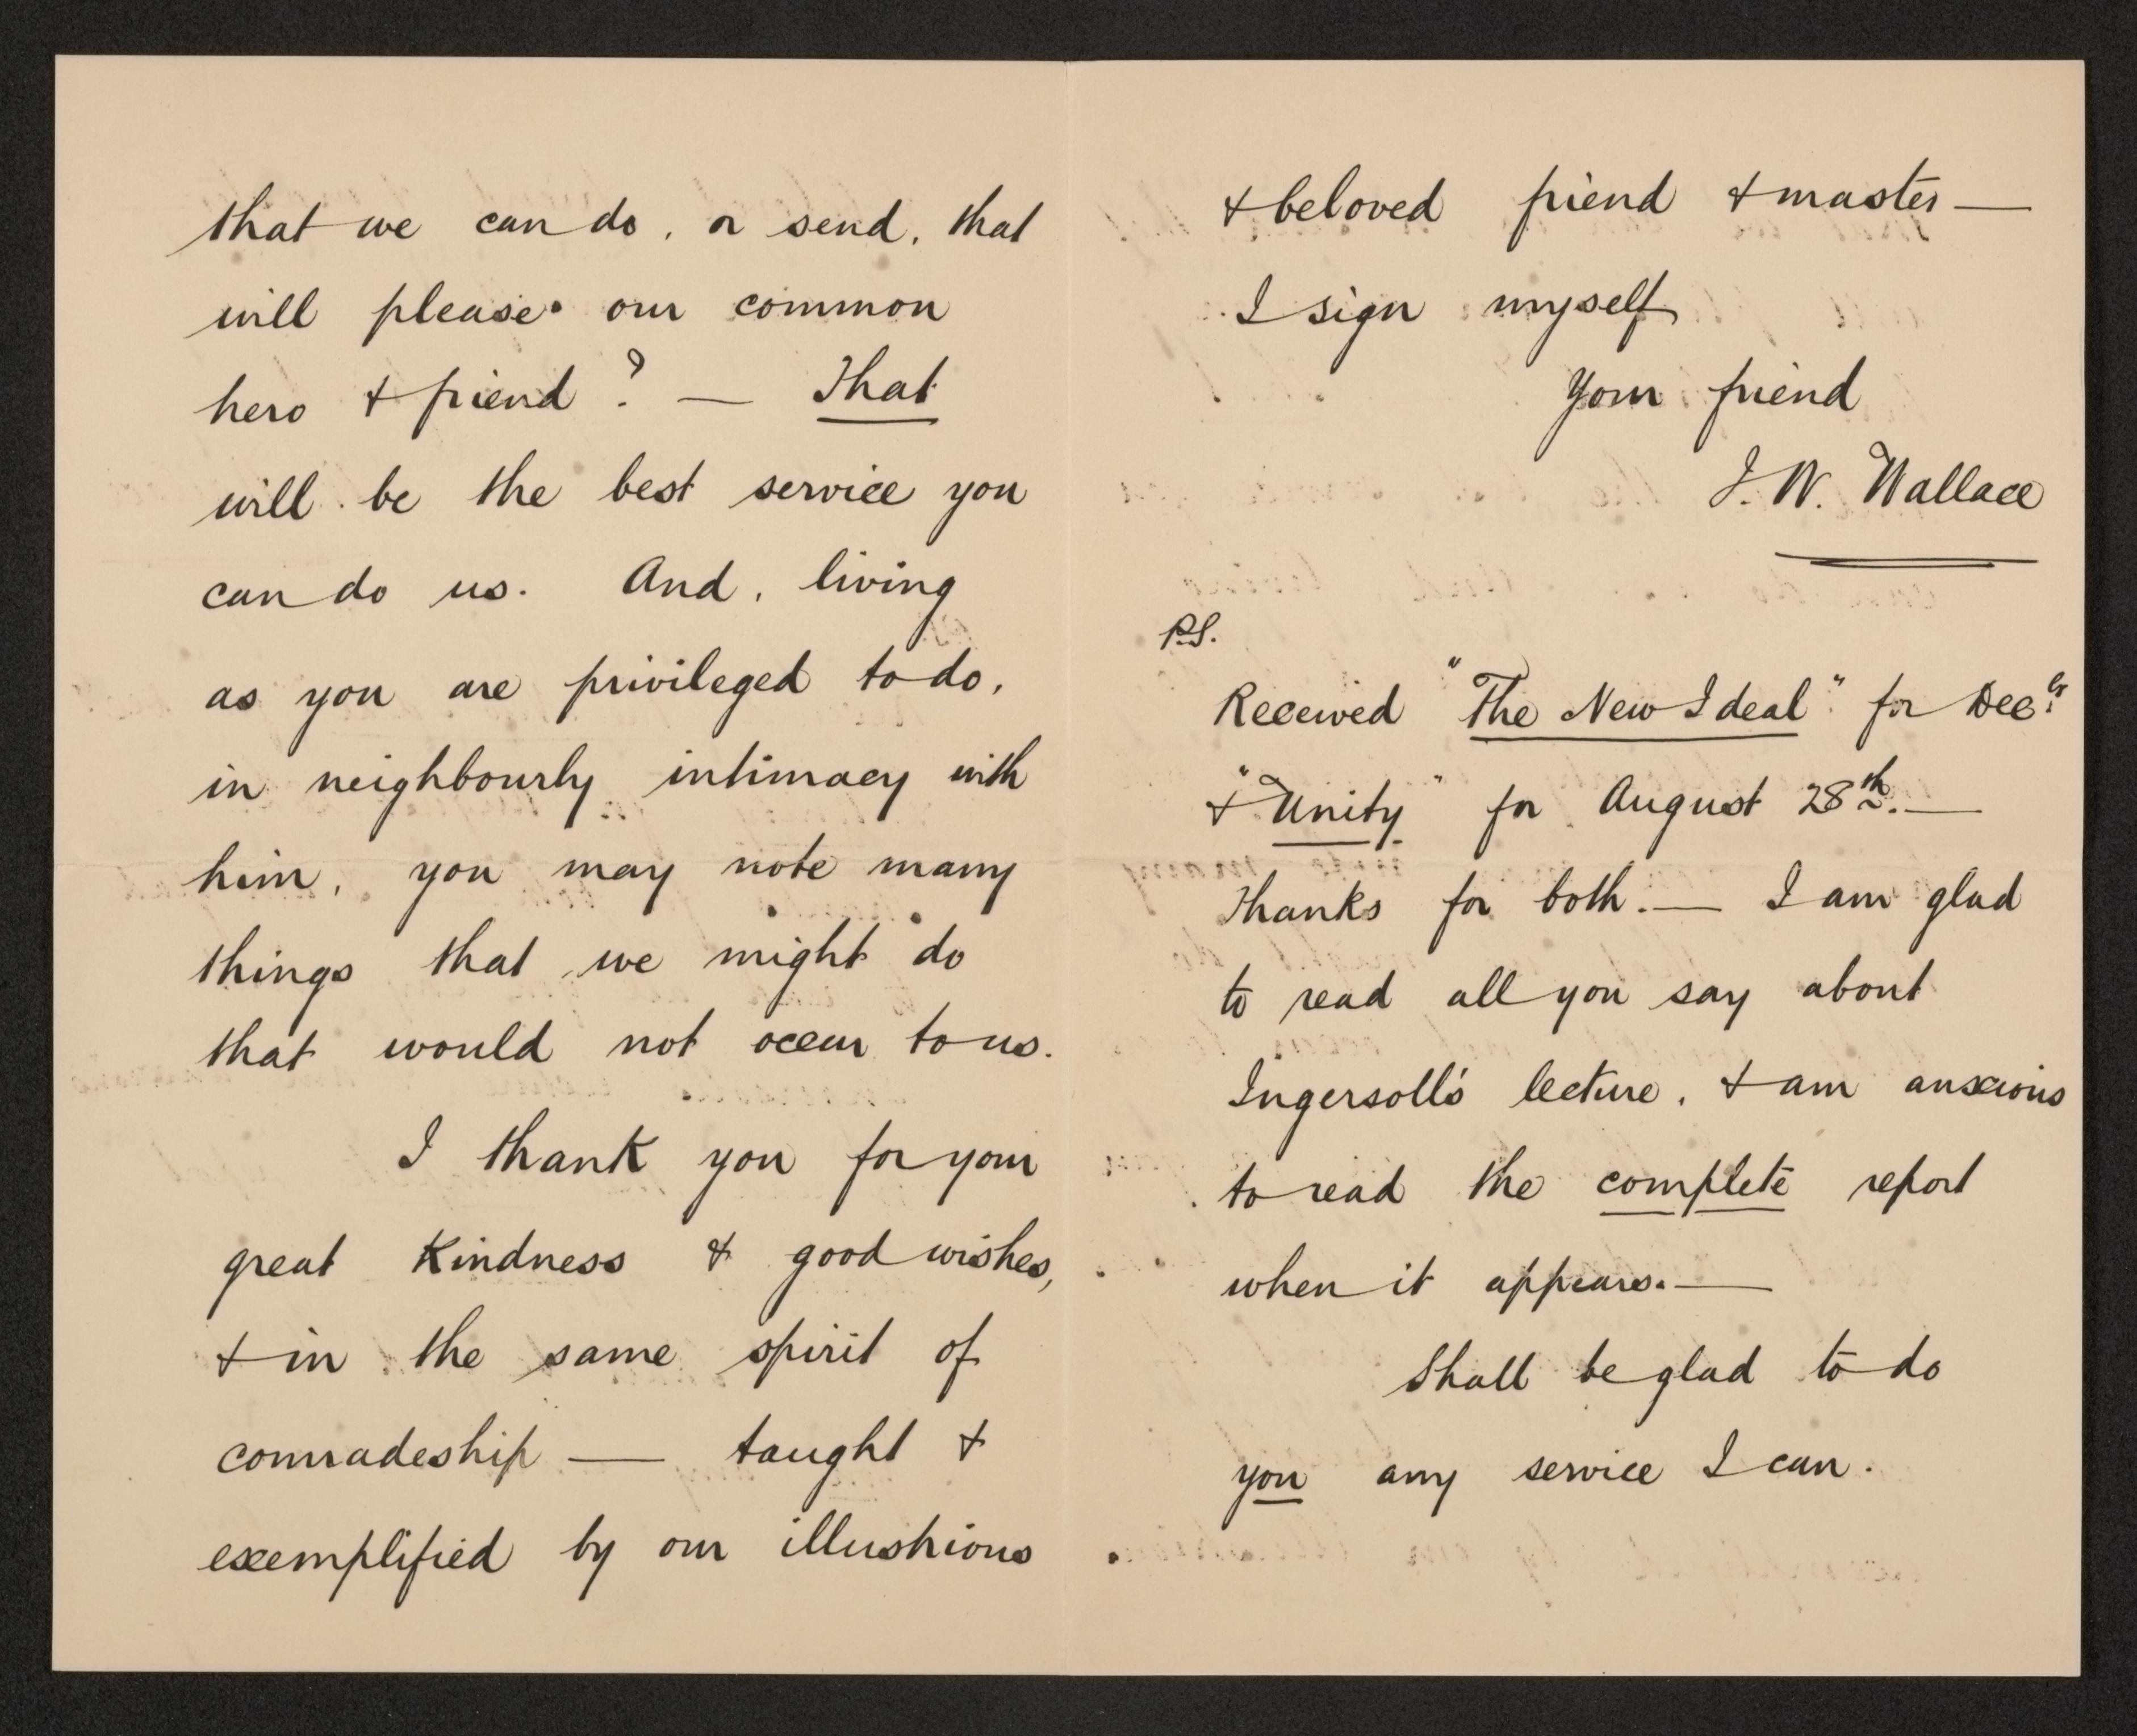 that we can do, or send, that
will please our common
hero & friend? — That
will be the best service you
can do us. And, living
as you are privileged to do,
in neighbourly intimacy with
him, you may note many
things that we might do
that would not occur to us.
I thank you for your
great kindness & good wishes,
& in the same spirit of
comradeship — taught &
exemplified by our illustrious
& beloved friend & master —
I sign myself
Your friend
J. W. Wallace
P.S.
Received "The New Ideal" for Decr
& "Unity" for August 28th. —
Thanks for both. — I am glad
to read all you say about
Ingersoll's lecture, & am anxious
to read the complete report
when it appears. —
Shall be glad to do
you any service I can.